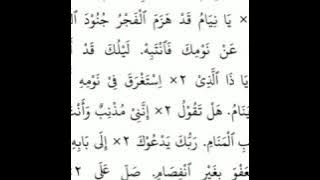 ×٢ يَا نِيَامُ قَدْ هَزَمَ الْفَجْرُ جُنُودَ
عَنْ نَوْمِكَ فَانْتَبِهْ. لَيْلُكَ قَدْ
يَا ذَا الَّذِىْ ×٢ اِسْتَغْرَقَ فِىْ نَوْمِهِ
يَنَامُ. هَلْ تَقُولُ ×٢ إِنَّنِىْ مُذْنِبٌ وَأَنْتَ
الْمَنَامِ. رَبُّكَ يَدْعُوْكَ ×٢ إِلَى بَابِهِ
بِغَيْرِ انْفِصَامِ. صَلِّ عَلَى ×٢